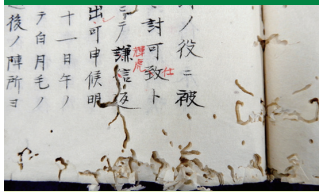 ノ役ニ被
討可致ト
仕
ニテ謙信返
輝虎
出可申候明
十一日午ノ
テ白月毛ノ
後ノ陣所ヨ